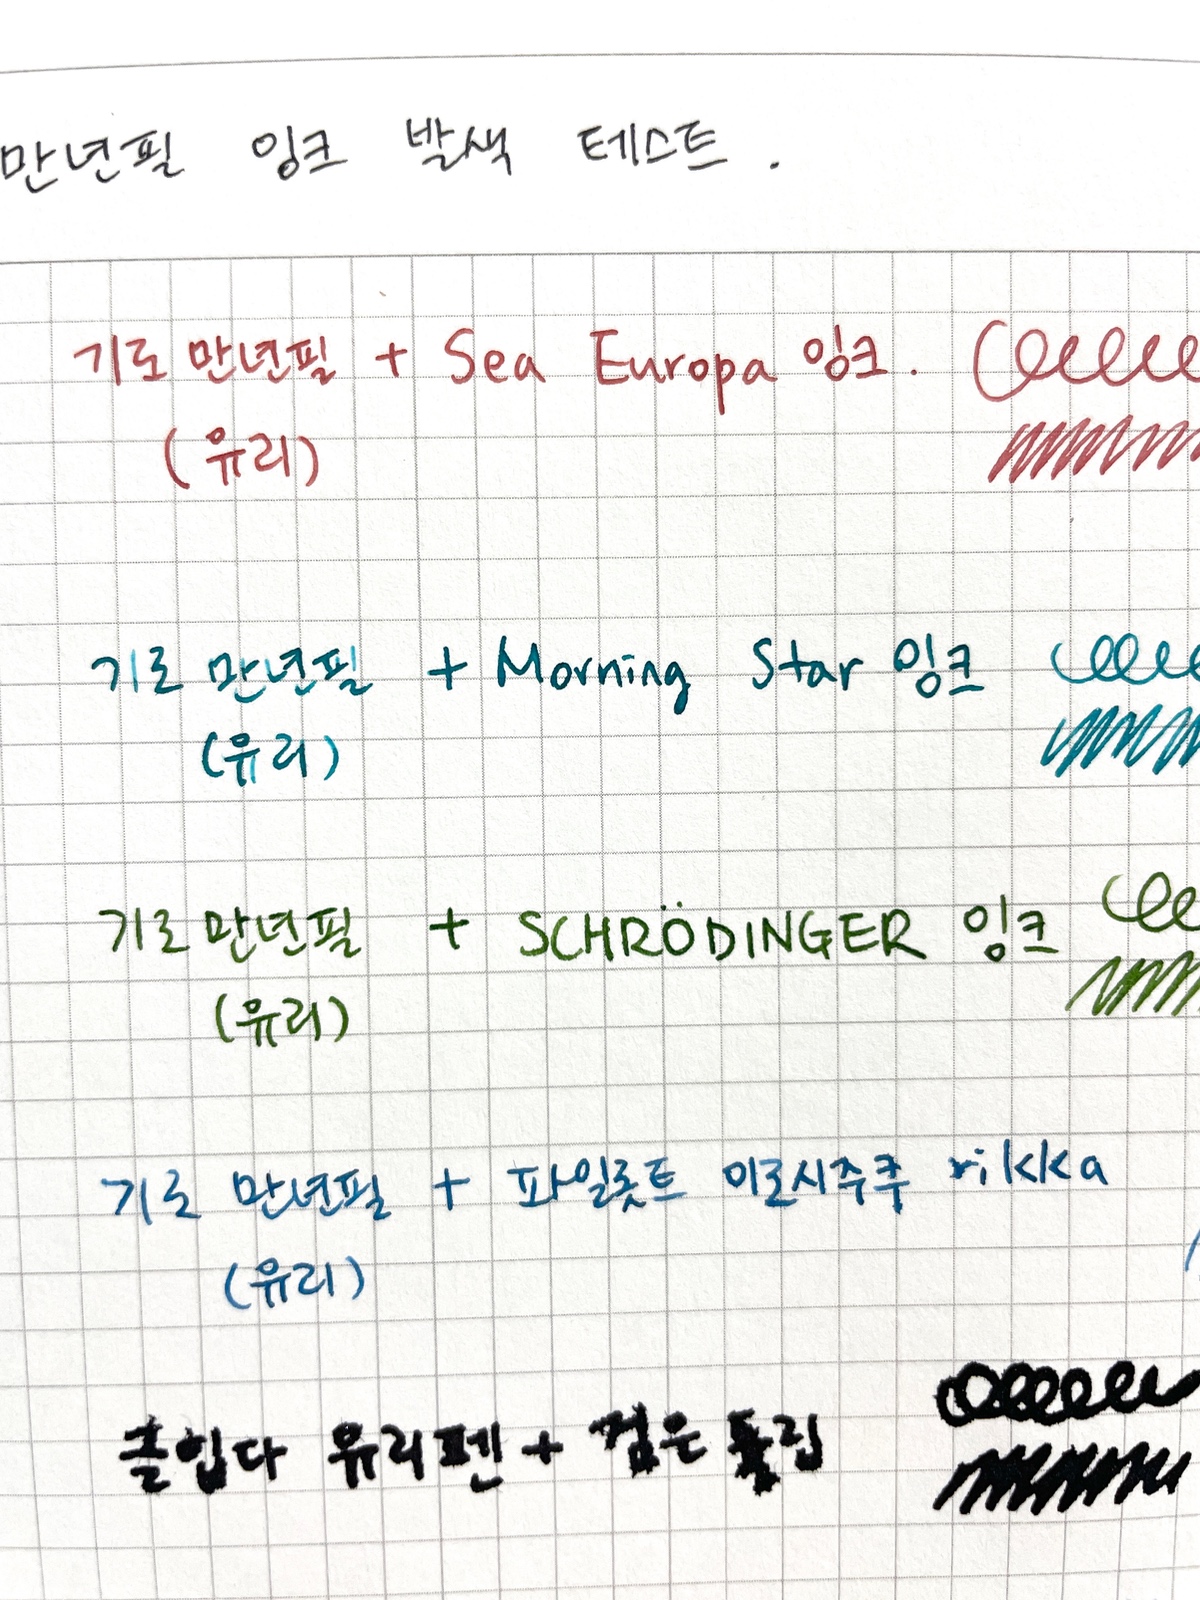 만년필 잉크 발색 테스트.
기로 만년필 + Sea Europa 잉크.
(유리)
기로 만년필 + Morning Star 잉크
(유리)
기로 만년필 + SCHRÖDINGER 잉크
(유리)
기로 만년필 + 파일롯트 이로시주쿠 rikka
(유리)
유리펜 + 검은